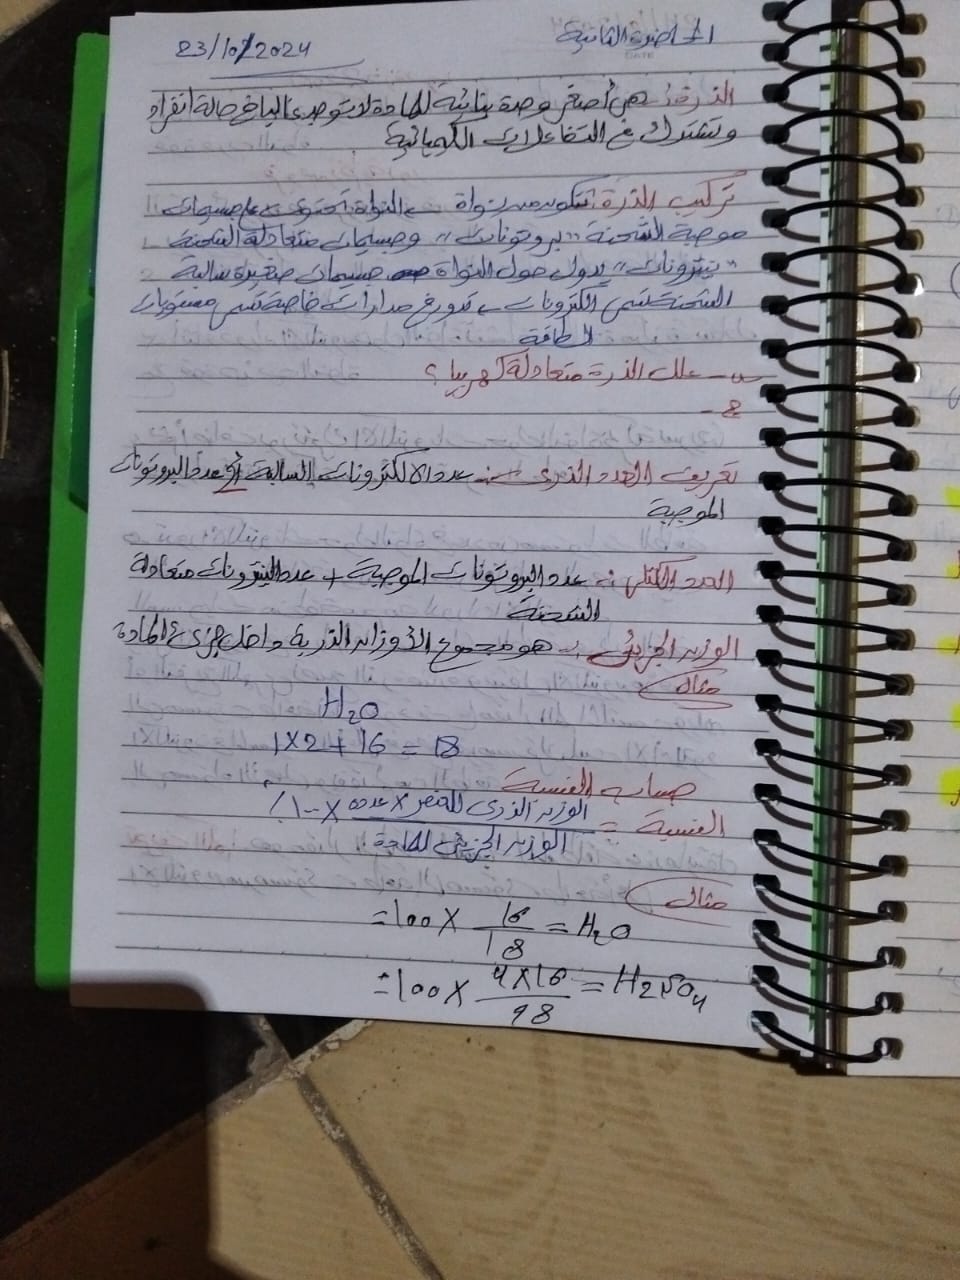 المحاضرة الثانية
23/10/2024
الذرة: هي أصغر وحدة بنائية للمادة لا توجد غالبا في حالة انفراد
وتشترك في التفاعلات الكيميائية
تركيب الذرة: تتكون من نواة ← النواة تحتوي على جسيمات
موجبة الشحنة "بروتونات" وجسيمات متعادلة الشحنة
"نيترونات" يدول حول النواة جسيمات صغيرة سالبة
الشحنة تسمى الكترونات ← تدور في مدارات خاصة تسمى مستويات
الطاقة
س - علل الذرة متعادلة كهربيا ؟
ج -
تعريف العدد الذري :- عدد الالكترونات السالبة أو عدد البروتونات
الموجبة
العدد الكتلي :- عدد البروتونات الموجبة + عدد النيترونات متعادلة
الشحنة
الوزن الجزيئي :- هو مجموع الأوزان الذرية داخل جزيء المادة
مثال
H₂O
1X2+16=18
حساب النسبة
النسبة = الوزن الذري للعنصر X عدده X ١٠٠٪
الوزن الجزيئي للمادة
مثال
=100 X 16/18 = H₂O
=100 X 4X16/98 = H₂SO₄